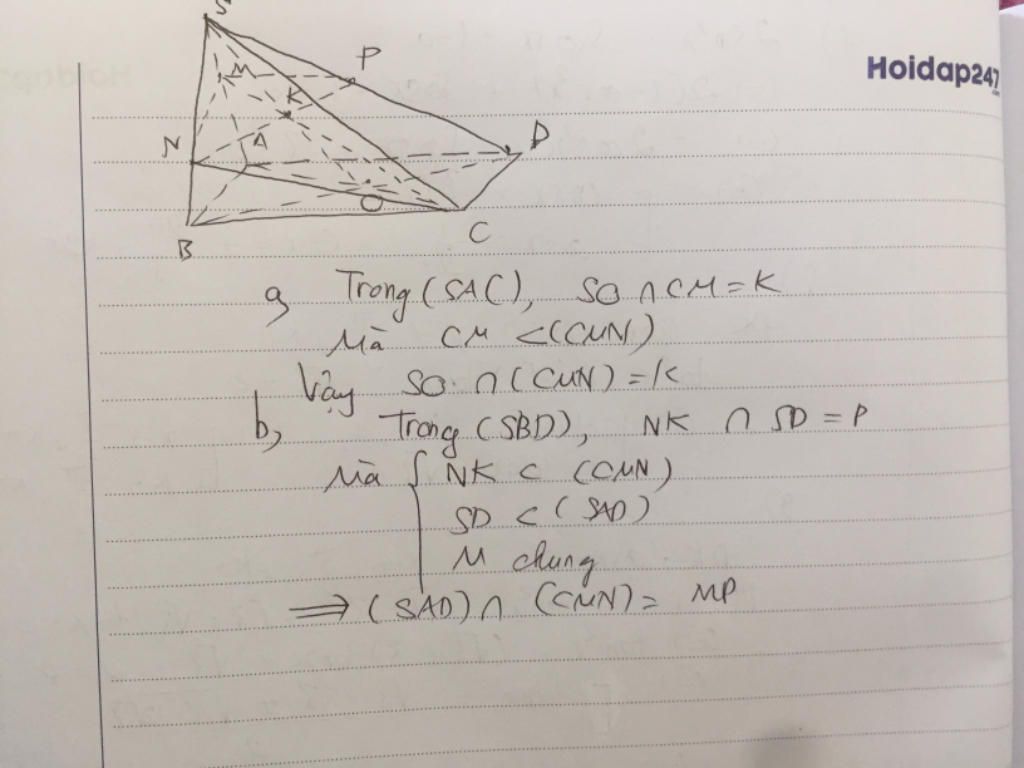 S
P
Hoidap247
.com
M
K
N
A
D
O
C
B
a, Trong (SAC), SO ∩ CM = K
Mà CM ⊂ (CMN)
Vậy SO ∩ (CMN) = K
b, Trong (SBD), NK ∩ SD = P
Mà { NK ⊂ (CMN)
SD ⊂ (SAD)
M chung
⟹ (SAD) ∩ (CMN) = MP